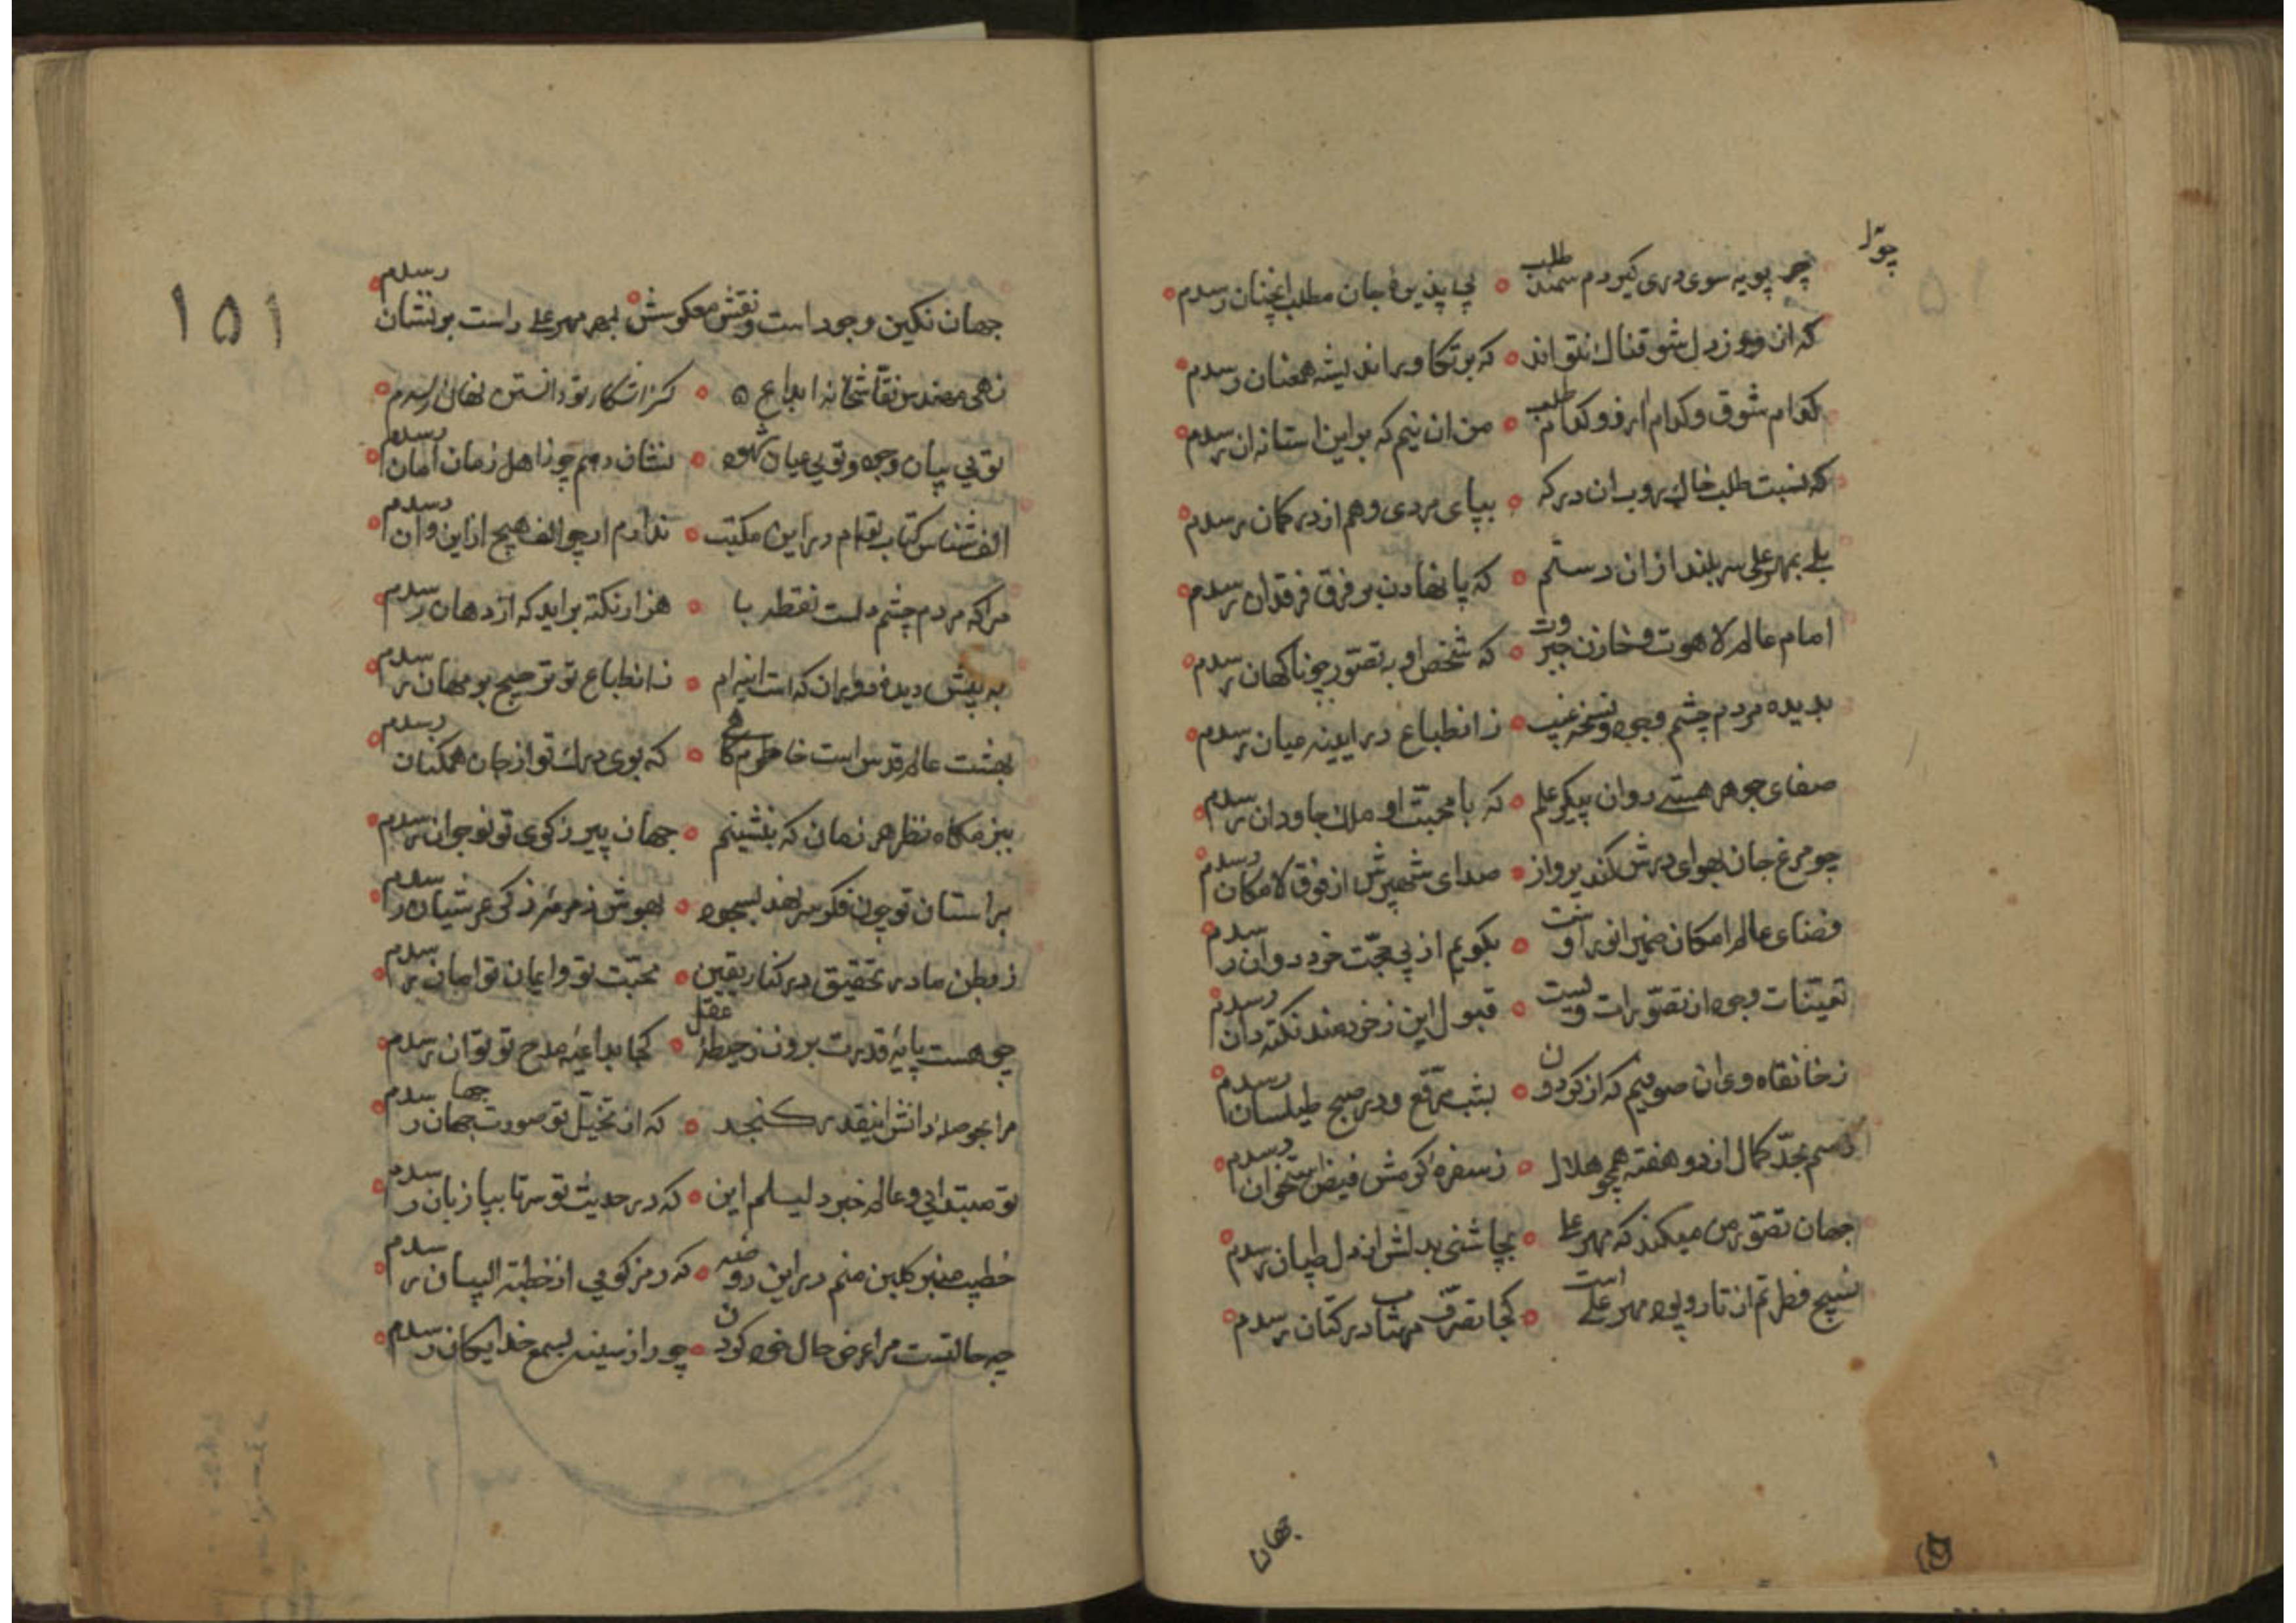 چو پویه سوی دری گیردم سمند طلب ○ بجا پذیرهٔ جان مطلب انچنان رسدم ○
که ان فروز دل شوقناک نتواند ○ که بر تکاور اندیشه همعنان رسدم ○
کدام شوق و کدام ارزو کدام طلب ○ من ان نیم که براین استانه ان رسدم
که نسبت طلب خاک روب ان درکه ○ بپای مردی وهم از در کمان رسدم
بلی بمهر علی سربلند ازان رستم ○ که پا نهادن بر فرق فرقدان رسدم
امام عالم لاهوت و خازن جبروت ○ که شخص او به تصور چو ناکهان رسدم
بدیده مردم چشم وجود و نسخه غیب ○ ز انطباع در ایینه میان رسدم
صفای جوهر هستی روان پیکر علم ○ که با محبت او ملک جاودان رسدم
چو مرغ جان بهوای درش کند پرواز ○ صدای شهپرش از فوق لامکان رسدم
فضای عالم امکان ضمیر انور اوست ○ بکویم از پی حجت خرد دوان رسدم
تعینات وجود از تصورات ویست ○ قبول این ز خردمند نکته دان رسدم
ز خانقاه وی ان صوفیم که از کردون ○ بشب مرقع و در صبح طیلسان رسدم
رسم بحد کمال از دو هفته همچو هلال ○ ز سفرهٔ کرمش فیض استخوان رسدم
جهان تصور من میکند که مهر علی ○ بچاشنی بدلش از دل طپان رسدم
نسیج فطرتم از تار و پود مهر علی است ○ کجا تصرف مهتاب در کتان رسدم
جهان
جهان نکین وجود است و نقش معکوسش ○ بمهر مهر علی راست بر نشان رسدم
زهی مهندس نقاشخانه ابداع ○ کز اشکار تو دانستن نهان رسدم
تویی بیان وجود و تویی عیان شهود ○ نشان دهم چو ز اهل زمان امان رسدم
الف شناس کتاب توام در این مکتب ○ ندارم ار چو الف هیچ از این و ان رسدم
مرا که مردم چشم دلست نقطه با ○ هزار نکته براید که از دهان رسدم
به پیش دیدهٔ دوران که است اینرام ○ ز انطباع تو ترجیح بر مهان رسدم
بهشت عالم قدس است خاطرم کاهی ○ که بوی درک تو از جان همکنان رسدم
ببزمکاه نظر هر زمان که بنشینم ○ جهان پیر ز کوی تو نوجوان رسدم
بر استان تو چون فکر سر نهد بسجود ○ بهوش زمزمهٔ ذکر عرشیان رسدم
ز بطن مادر تحقیق در کنار یقین ○ محبت تو و ایمان توامان رسدم
چو هست پایهٔ قدرت برون ز حیطهٔ عقل ○ کجا بداعیهٔ مدح تو توان رسدم
مرا بحوصلهٔ دانش اینقدر کنجد ○ که از تخیل تو صورت جهان جها رسدم
تو مبتدایی و عالم خبر دلیلم این ○ که در حدیث تو سر تا بپا زبان رسدم
خطیب منبر کلبن منم در این روضه ○ که رمز کویی از خطبة البیان رسدم
چه حالتست مرا عرض حال خود کردن ○ چو راز سینه بسمع خدایکان رسدم
۱۵۱